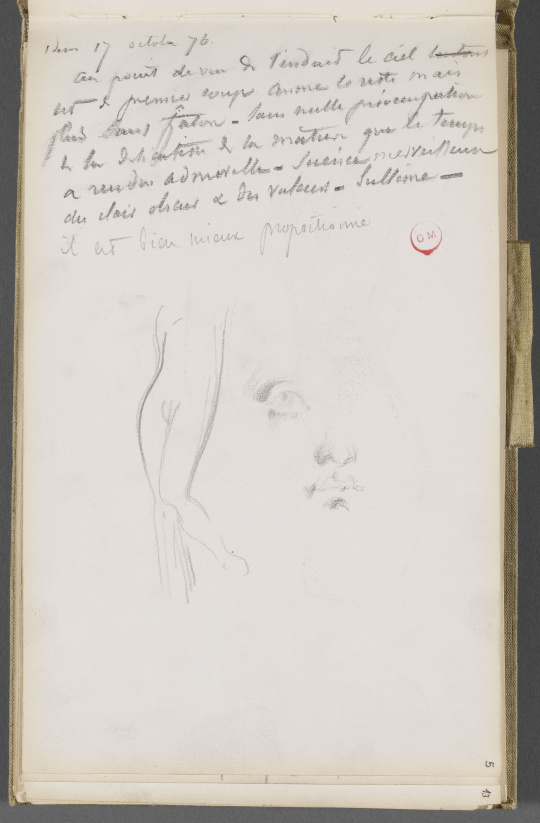 17 octobre 76.
au point de vue de l'enduit le ciel
est de premier coup comme le reste mais
plus sans façon - sans nulle préoccupation
de la délicatesse de la matière que le temps
a rendue admirable - Science merveilleuse
du clair obscur & des valeurs - Sublime -
il est bien mieux proportionné
OM
5
13